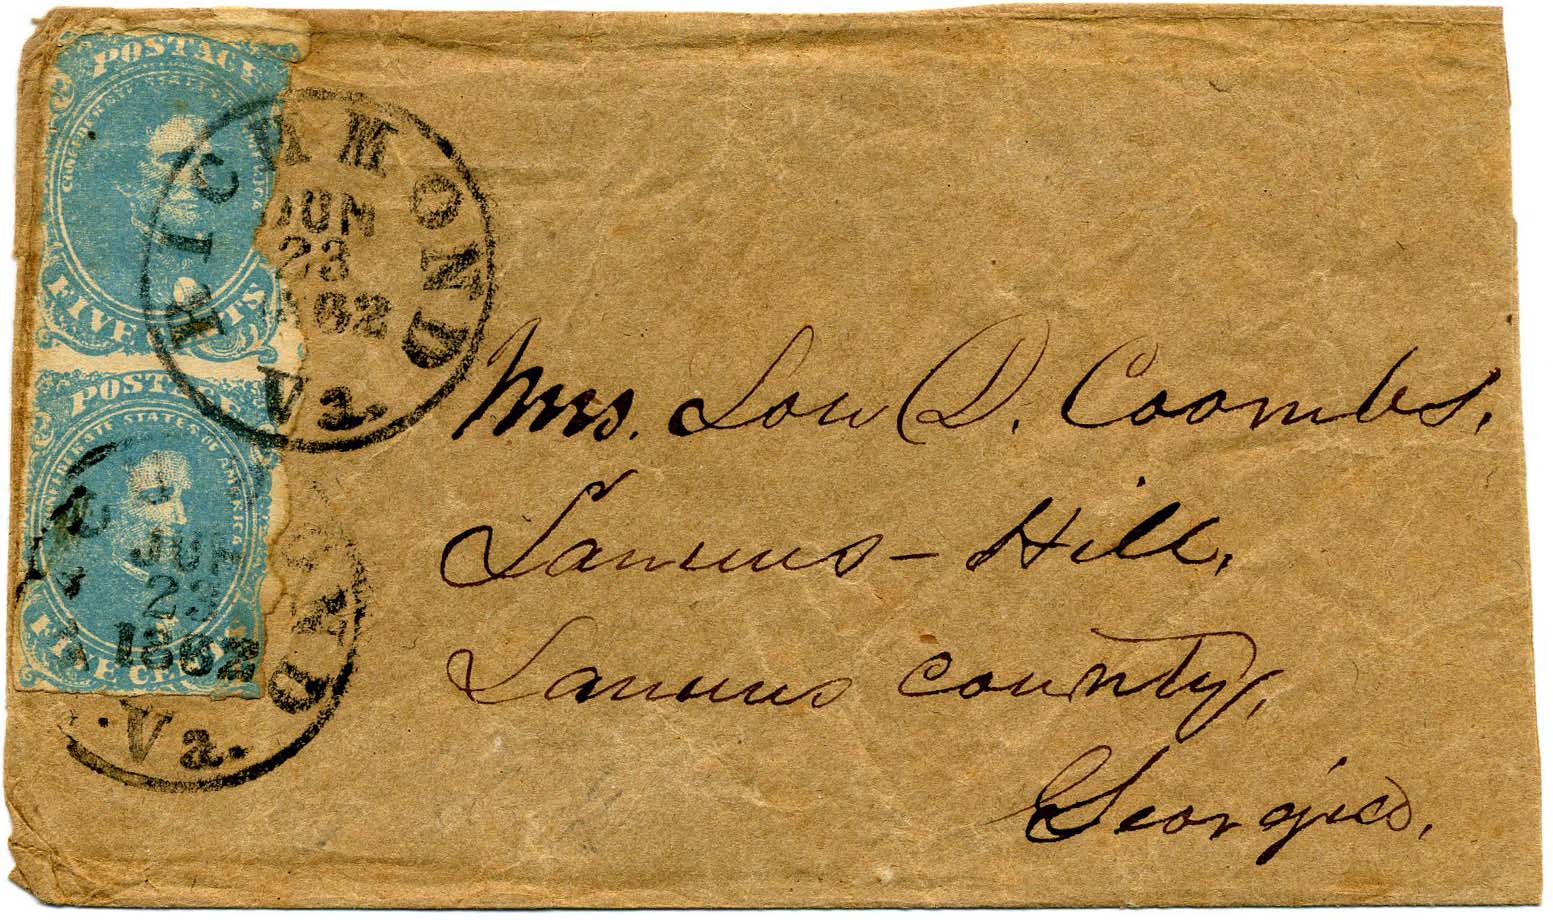 POSTAGE
CONFEDERATE STATES OF AMERICA
FIVE CENTS
RICHMOND
JUN
23
1862
Va.
POSTAGE
CONFEDERATE STATES OF AMERICA
FIVE CENTS
JUN
23
1862
Va.
Mrs. Lou D. Coombs.
Laurens-Hill,
Laurens county,
Georgia.